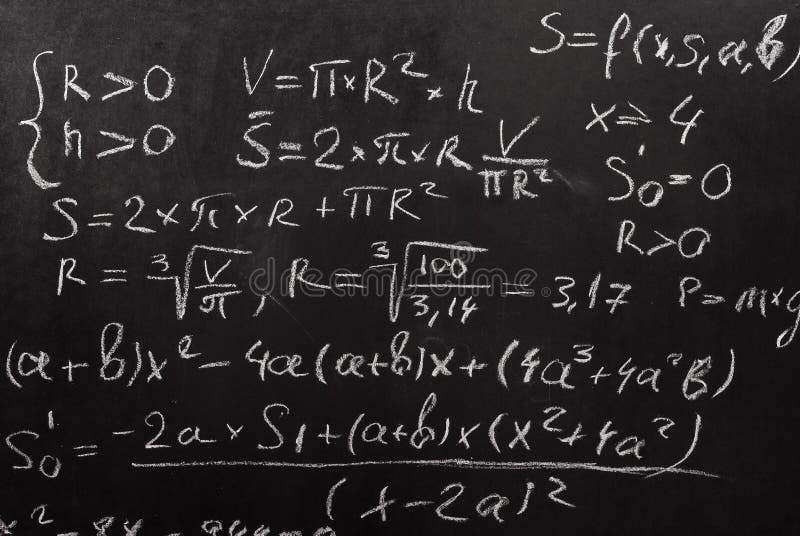 S=f(x,s,a,b)
{ R>0
h>0
V=π×R²×h
x=4
S̄=2×π×R V/πR²
S₀'=0
S=2×π×R+πR²
R>0
R=³√(V/π), R=³√(100/3,14)=3,17
P=m×g
(a+b)x²-4a(a+b)x+(4a³+4a²b)
S₀'=(-2a×S₁+(a+b)×(x²+4a²))/(x-2a)²
dreamstime